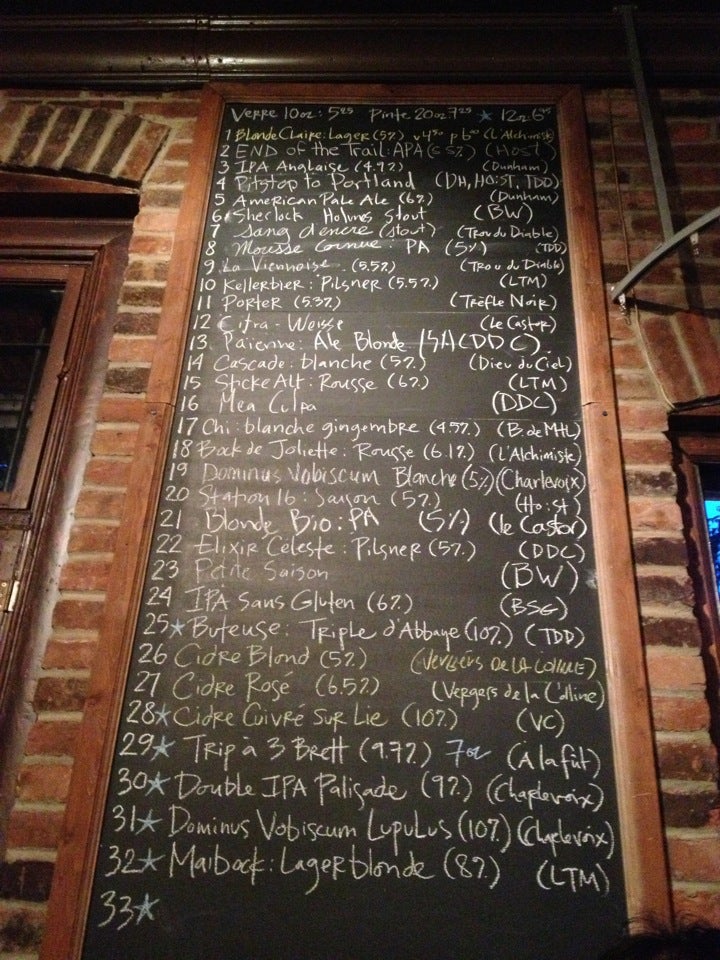 Verre 10oz: 5.25 Pinte 20oz 7.25 ★ 12oz 6.75
1 Blonde Claire: Lager (5%) v 4.50 p 6.00 (L'Alchimiste)
2 END of the Trail: APA (5.5%) (Host)
3 IPA Anglaise (4.9%) (Dunham)
4 Pitstop to Portland (DH, HO:ST, TDD)
5 American Pale Ale (6%) (Dunham)
6 Sherlock Holmes Stout (BW)
7 Sang d'encre (stout) (Trou du Diable)
8 Mousse Cornue: PA (5%) (TDD)
9 La Viennoise (5.5%) (Trou du Diable)
10 Kellerbier: Pilsner (5.5%) (LTM)
11 Porter (5.3%) (Trèfle Noir)
12 Citra-Weisse (le Castor)
13 Païenne: Ale Blonde (DDC)
14 Cascade: blanche (5%) (Dieu du Ciel)
15 Sticke Alt: Rousse (6%) (LTM)
16 Mea Culpa (DDC)
17 Chi: blanche gingembre (4.5%) (B. de MTL)
18 Bock de Joliette: Rousse (6.1%) (L'Alchimiste)
19 Dominus Vobiscum Blanche (5%) (Charlevoix)
20 Station 16: Saison (5%) (Ho:st)
21 Blonde Bio: PA (5%) (le Castor)
22 Elixir Céleste: Pilsner (5%) (DDC)
23 Petite Saison (BW)
24 IPA Sans Gluten (6%) (BSG)
25★ Buteuse: Triple d'Abbaye (10%) (TDD)
26 Cidre Blond (5%) (VERGERS DE LA COLLINE)
27 Cidre Rosé (6.5%) (Vergers de la Colline)
28★ Cidre Cuivré Sur Lie (10%) (VC)
29★ Trip à 3 Brett (9.7%) 7oz (A la fût)
30★ Double IPA Palissade (9%) (Charlevoix)
31★ Dominus Vobiscum Lupulus (10%) (Charlevoix)
32★ Maibock: Lager blonde (8%) (LTM)
33★